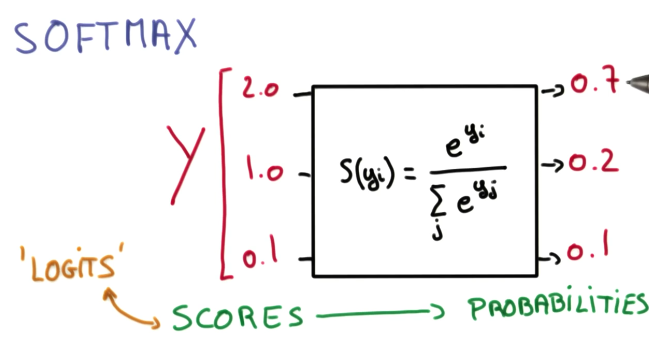 SOFTMAX
Y
2.0
1.0
0.1
S(yi) = e^yi / Σj e^yj
→ 0.7
→ 0.2
→ 0.1
'LOGITS'
SCORES → PROBABILITIES